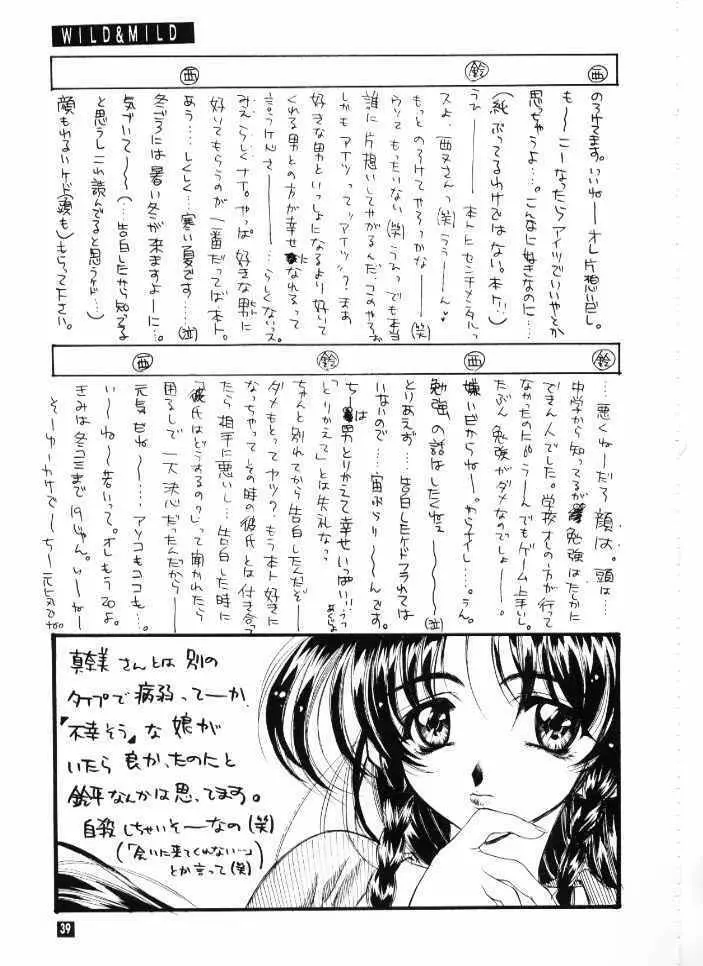 WILD&MILD
西
のろけてます。いいねーオレ片想いだし。
も〜こーなったらアイツでいいやとか
思っちゃうよ…。こんなに好きなのに…
(純ぶってるわけではない。本ト!!)
鈴
うひ———本トにセンチメンタルっ
スよ、西又さんっ(笑)うーん♥
もっとのろけてやろっかなー(笑)
ウソでもったいない(笑)うわっでも本当
誰に片想いしてやがるんだ、このやろお
しかもアイツって"アイツ"?まあ
好きな男といっしょになるより好いて
くれる男との方が幸せになれるって
言うケドさ———…らしくないっス。
みえらしくナイ。やっぱ好きな男に
好いてもらうのが一番だってば本ト。
西
あう…しくしく…寒い夏です…(泣)
冬ごろには暑い冬が来ますよーに…。
気づいて〜〜(…告白したから知ってる
と思うしこれ読んでると思うケド…)
顔もわるいケド(頭も)もらって下さい。
鈴
…悪くねーだろ顔は。頭は…
中学から知ってるが勉強はたしかに
できん人でした。学校オレの方が行って
なかったのに。うーんでもゲーム上手いし。
たぶん勉強がダメなのでしょー。
西
嫌いだからねー。やらナイし…。うん。
勉強の話はしたくねえ〜〜(泣)
とりあえず…告白したケドフラれては
いないので…宙ぶらり〜〜んです。
鈴
ち〜は男とりかえて幸せいっぱい!!っつ
「とりかえて」とは失礼な?
ちゃんと別れてから告白したんだぞー
ダメもとってヤツ?もう本ト好きに
なっちゃってその時の彼氏とは付き合って
たら相手に悪いし…告白した時に
「彼氏はどうするの?」って聞かれたら
困るしで一大決心だったんだから—
西
元気だね〜…アソコもココも…。
い〜ね〜若いって。オレもう20よ。
きみは冬コミまで19じゃん。い〜な〜
そーゆーわけでーちー元気です
真奈美さんとは別の
タイプで病弱ってーか、
『不幸そう』な娘が
いたら良かったのにと
鈴平なんかは思ってます。
自殺しちゃいそーなの(笑)
(「会いに来てくれない…」
とか言って(笑))
39